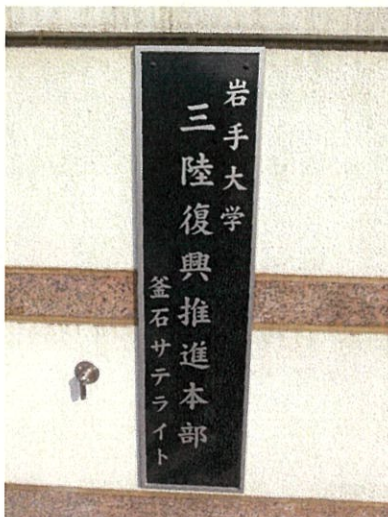 岩手大学
三陸復興推進本部
釜石サテライト